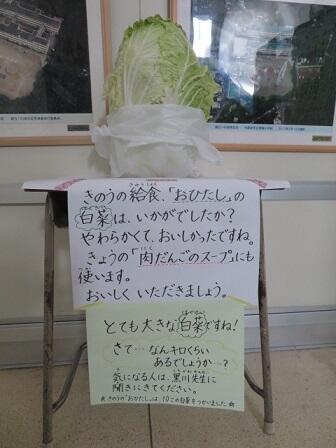 きのうの給食、「おひたし」の
白菜は、いかがでしたか?
やわらかくて、おいしかったですね。
きょうの「肉だんごのスープ」にも
使います。
おいしく いただきましょう。
とても大きな白菜ですね!
さて…なんキロくらい
あるでしょうか…?
気になる人は、黒川先生に
聞きにきてください。
★きのうの“おひたし”は、10この白菜をつかいました★